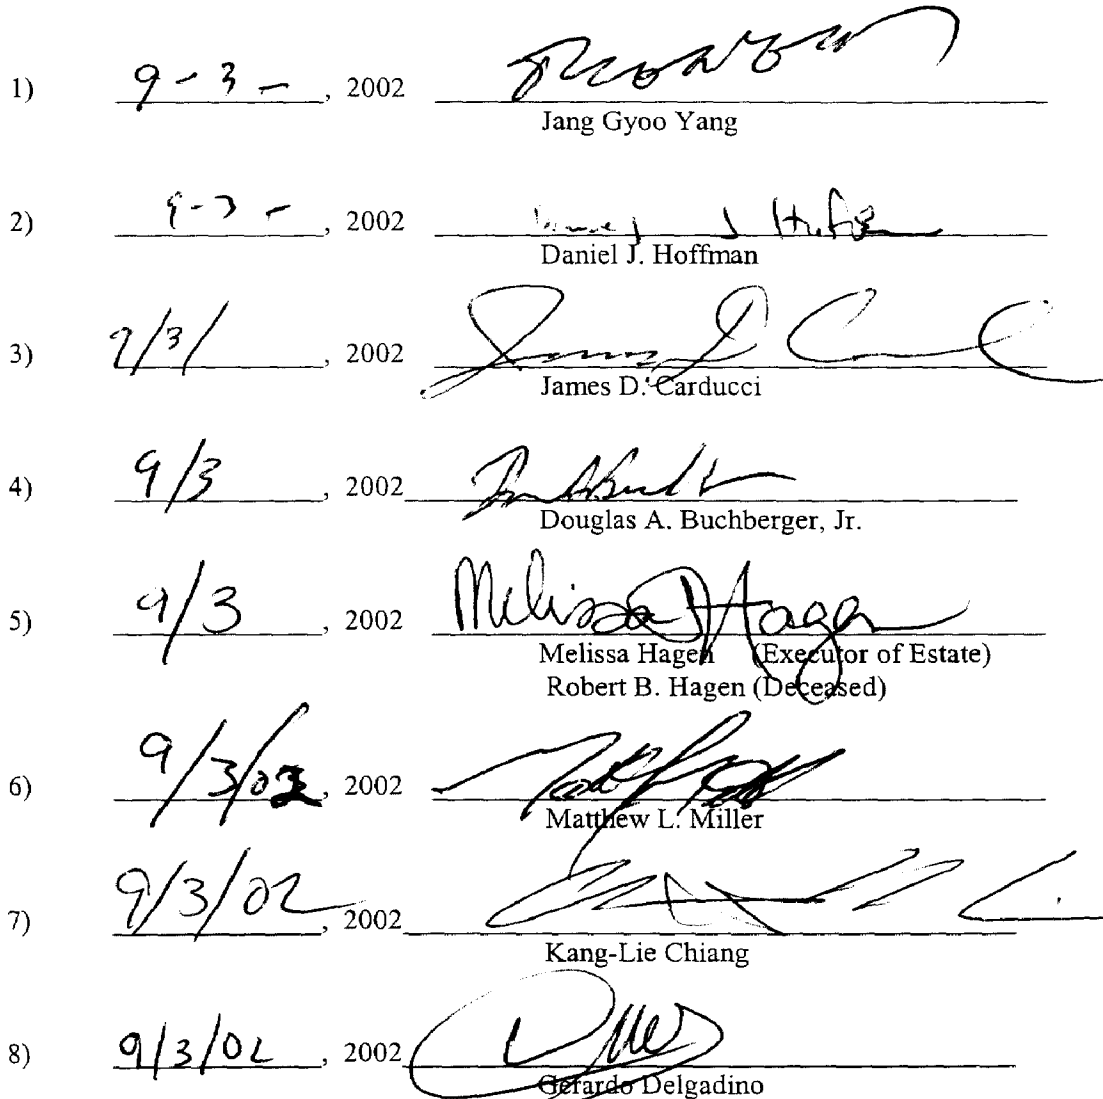 1) 9-3-, 2002
Jang Gyoo Yang
2) 9-3-, 2002
Daniel J. Hoffman
3) 9/3/, 2002
James D. Carducci
4) 9/3, 2002
Douglas A. Buchberger, Jr.
5) 9/3, 2002 Melissa Hagen
Melissa Hagen (Executor of Estate)
Robert B. Hagen (Deceased)
6) 9/3/02, 2002
Matthew L. Miller
7) 9/3/02, 2002
Kang-Lie Chiang
8) 9/3/02, 2002
Gerardo Delgadino